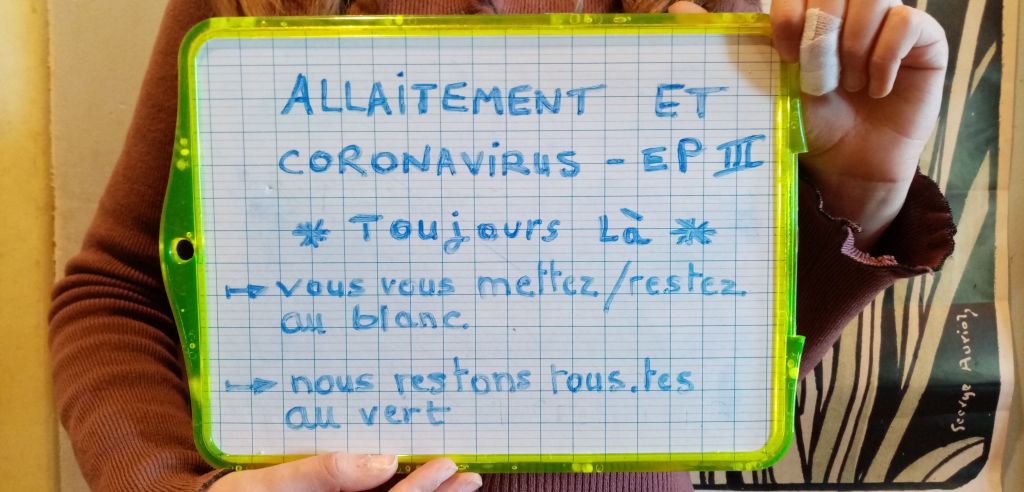 ALLAITEMENT ET
CORONAVIRUS - EP III
* Toujours Là *
→ vous vous mettez/restez
au blanc.
→ nous restons tous.tes
au vert
George Auriol